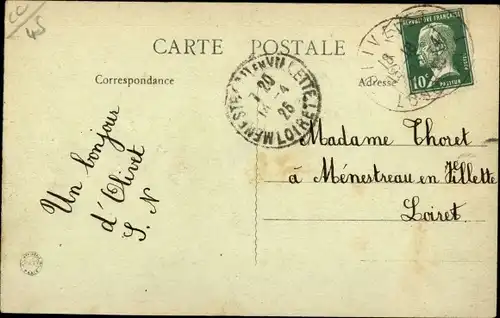 CC
45
CARTE POSTALE
Correspondance
Adresse
RÉPUBLIQUE FRANÇAISE
10c
PASTEUR
OLIVET
LOIRET
7 20
-4
25
Un bonjour
d'Olivet
S. N
Madame Thoret
à Ménestreau en Villette
Loiret